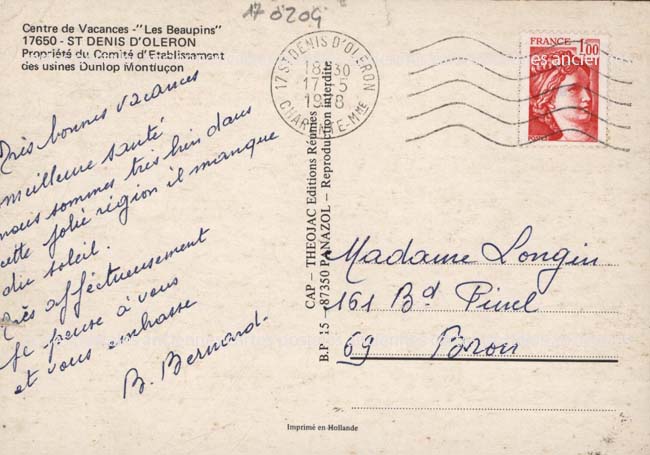 17 0209
Centre de Vacances -"Les Beaupins"
17650 - ST DENIS D'OLERON
Propriété du Comité d'Etablissement
des usines Dunlop Montluçon
Très bonnes vacances
meilleure santé
nous sommes très bien dans
cette jolie région il manque
du soleil.
Très afféctueusement
Je pense à vous
et vous embrasse
B. Bernard.
17 ST DENIS D'OLERON
18 30
17 -5
1978
CHARENTE-Mme
FRANCE 1,00
B.P. 115 CAP - THEOJAC Editions Réunies
87350 PANAZOL - Reproduction interdite
Madame Longin
161 Bd Pinel
69 Bron
Imprimé en Hollande